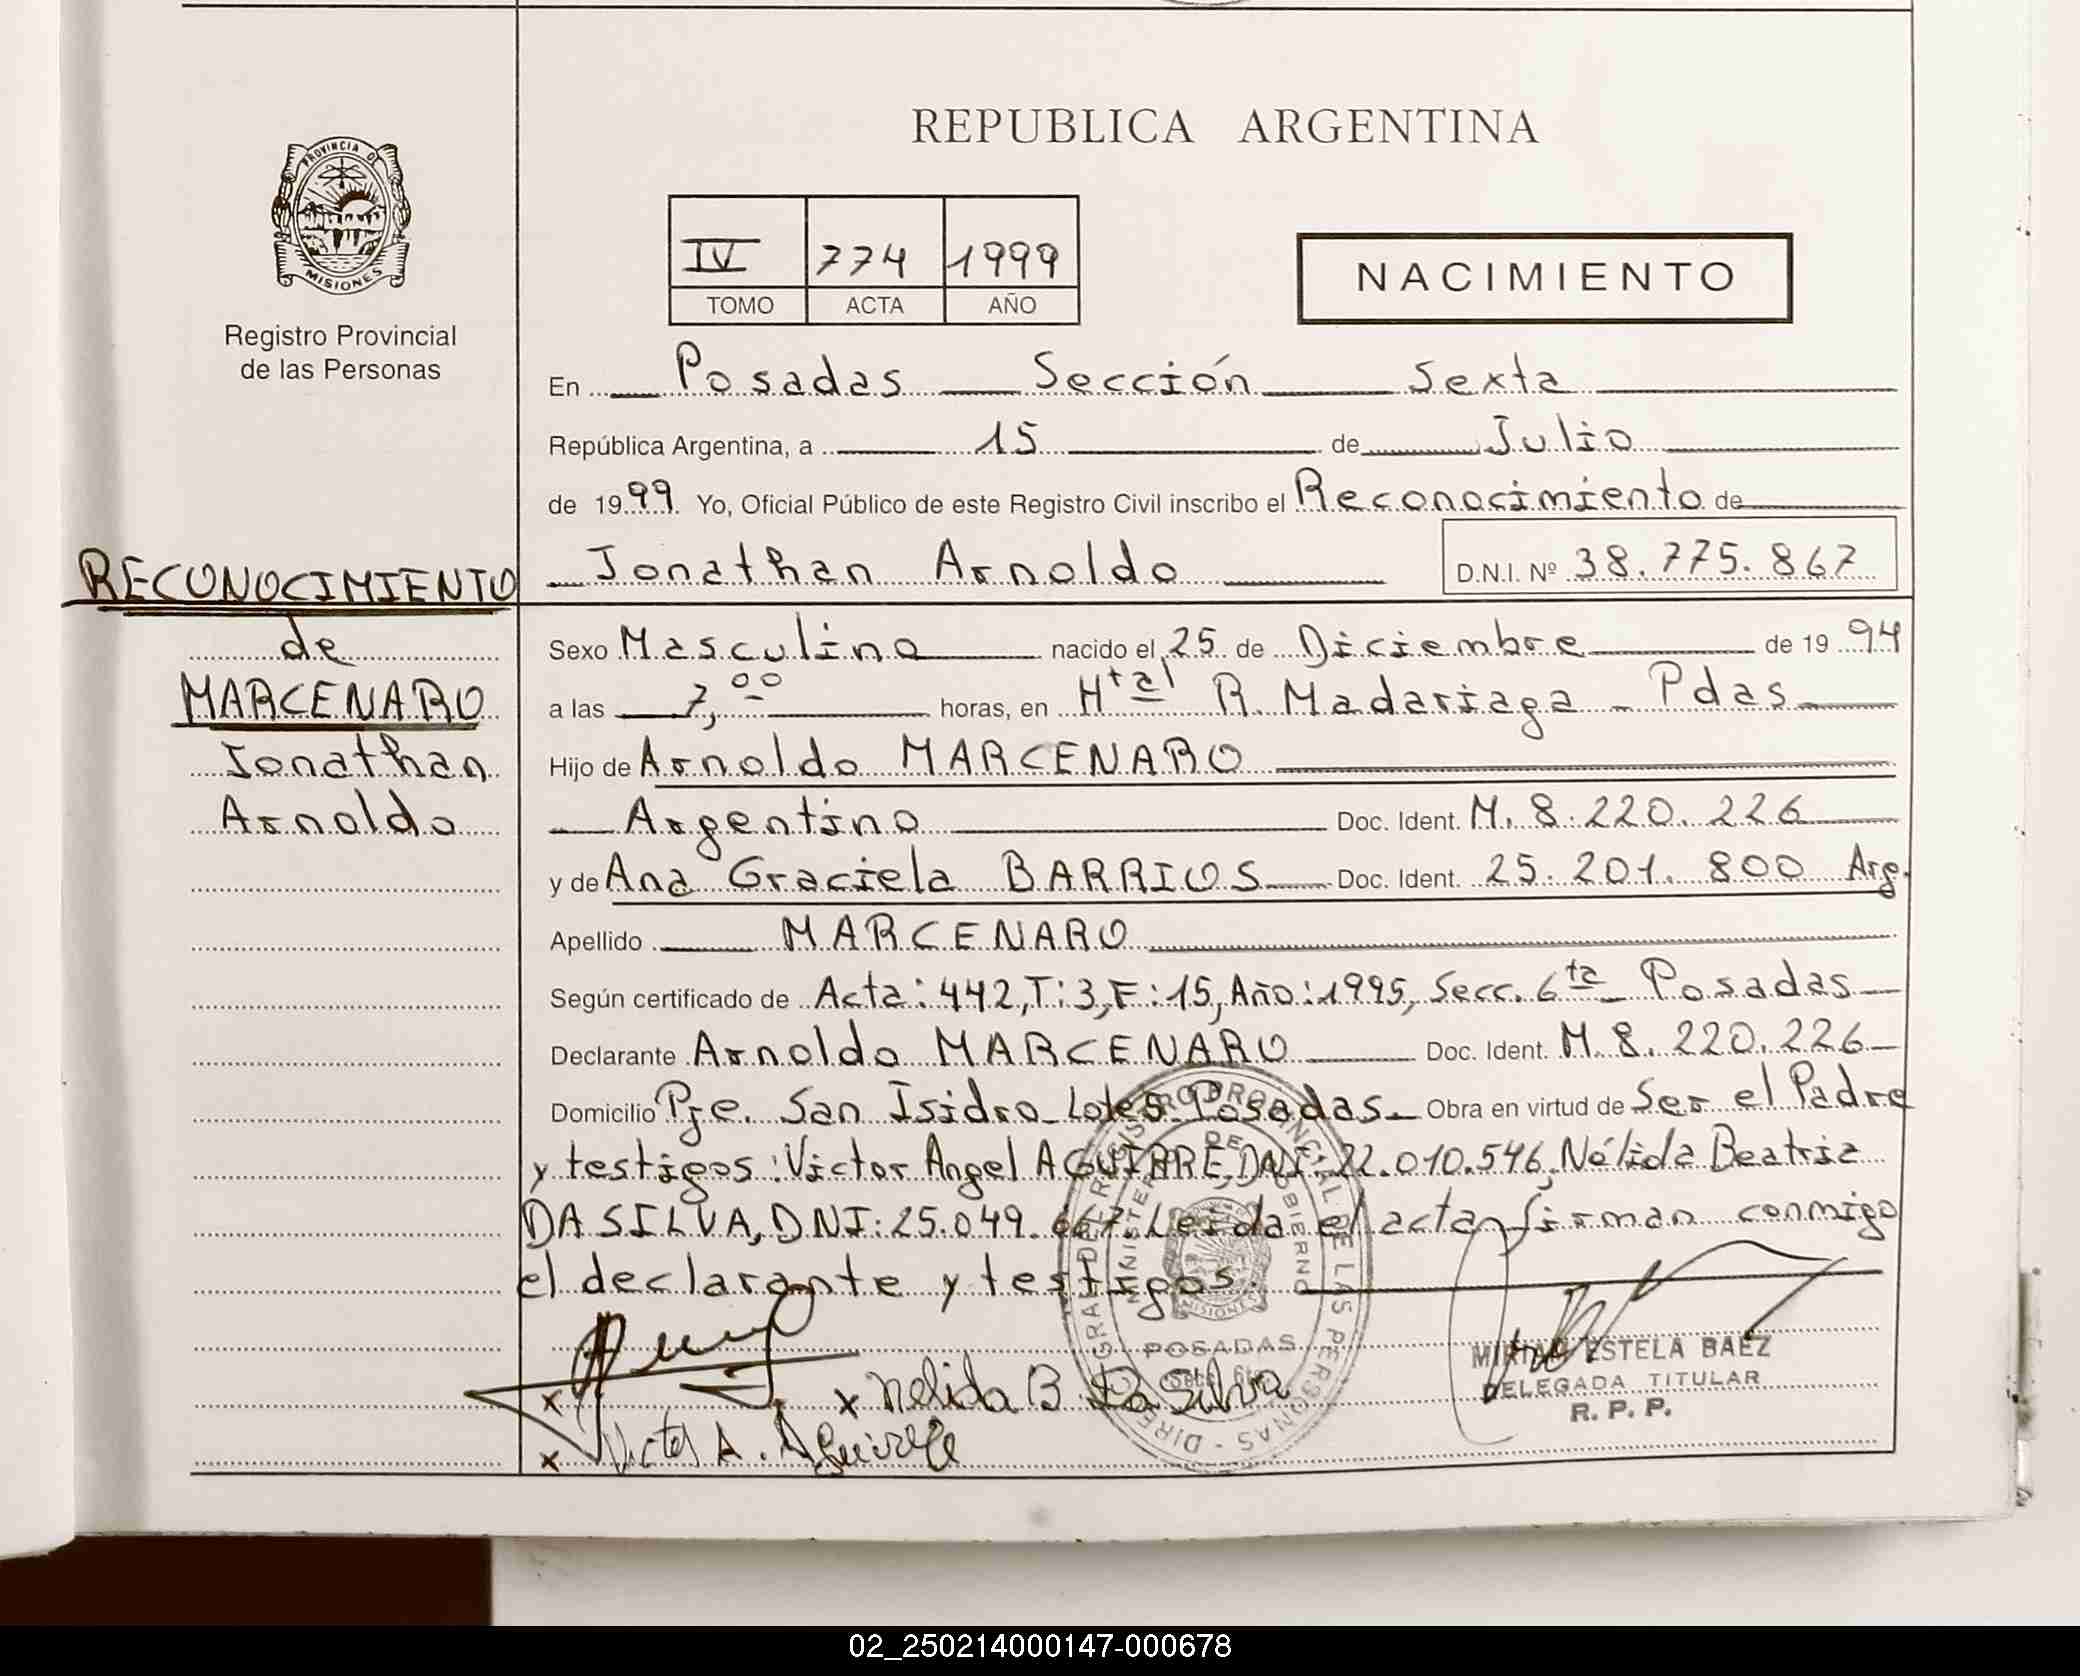 REPUBLICA ARGENTINA
PROVINCIA DE
MISIONES
Registro Provincial
de las Personas
IV 774 1999
TOMO ACTA AÑO
NACIMIENTO
En Posadas Sección Sexta
República Argentina, a 15 de Julio
de 1999 Yo, Oficial Público de este Registro Civil inscribo el Reconocimiento de
Jonathan Arnoldo D.N.I. Nº 38.775.867
RECONOCIMIENTO
de
MARCENARO
Jonathan
Arnoldo
Sexo Masculino nacido el 25 de Diciembre de 1994
a las 7,00 horas, en Htal R. Madariaga - Pdas
Hijo de Arnoldo MARCENARO
Argentino Doc. Ident. M. 8.220.226
y de Ana Graciela BARRIOS Doc. Ident. 25.201.800 Arg.
Apellido MARCENARO
Según certificado de Acta: 442, T: 3, F: 15, Año: 1995, Secc. 6ta Posadas
Declarante Arnoldo MARCENARO Doc. Ident. M. 8.220.226
Domicilio Pje. San Isidro Lote 5 Posadas Obra en virtud de Ser el Padre
y testigos: Victor Angel AGUIRRE, DNI: 22.010.546, Nélida Beatriz
DA SILVA, DNI: 25.049.667. Leída el acta firman conmigo
el declarante y testigos.
x x Nelida B Da Silva
x Victor A. Aguirre
DIRECCION GRAL. DE REGISTRO PROVINCIAL DE LAS PERSONAS
MINISTERIO DE GOBIERNO
MISIONES
POSADAS
Secc. 6ta
MIRIAM ESTELA BAEZ
DELEGADA TITULAR
R. P. P.
02_250214000147-000678